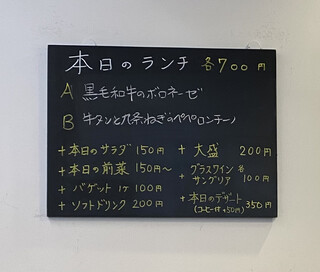 本日のランチ 各700円
A 黒毛和牛のボロネーゼ
B 牛タンと九条ねぎのペペロンチーノ
+本日のサラダ 150円
+本日の前菜 150円〜
+バゲット 1ヶ 100円
+ソフトドリンク 200円
+大盛 200円
+グラスワイン 各
サングリア 100円
+本日のデザート 350円
(コーヒー付+50円)